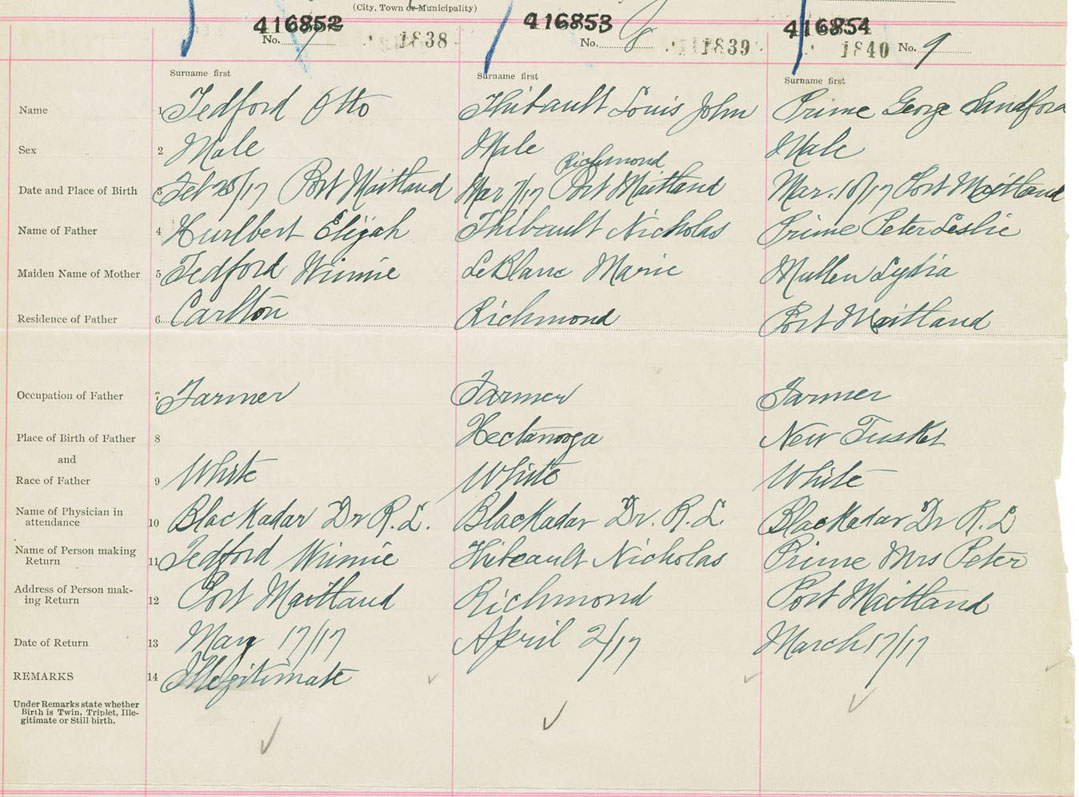 (City, Town or Municipality)
416852 416853 416854
No. 1838 No. 8 1839 1840 No. 9
Surname first Surname first Surname first
Name 1 Tedford Otto Thibault Louis John Prime George Sandford
Sex 2 Male Male Male
Richmond
Date and Place of Birth 3 Feb 28/17 Port Maitland Mar 7/17 Port Maitland Mar. 10/17 Port Maitland
Name of Father 4 Hurlbert Elijah Thibault Nicholas Prime Peter Leslie
Maiden Name of Mother 5 Tedford Winnie LeBlanc Marie Mullen Lydia
Residence of Father 6 Carlton Richmond Port Maitland
Occupation of Father 7 Farmer Farmer Farmer
Place of Birth of Father 8 Hectanooga New Tusket
and
Race of Father 9 White White White
Name of Physician in
attendance 10 Blackadar Dr R.L. Blackadar Dr. R.L. Blackadar Dr R.L
Name of Person making
Return 11 Tedford Winnie Thibeault Nicholas Prime Mrs Peter
Address of Person mak-
ing Return 12 Port Maitland Richmond Port Maitland
Date of Return 13 May 17/17 April 2/17 March 17/17
REMARKS 14 Illegitimate
Under Remarks state whether
Birth is Twin, Triplet, Ille-
gitimate or Still birth.